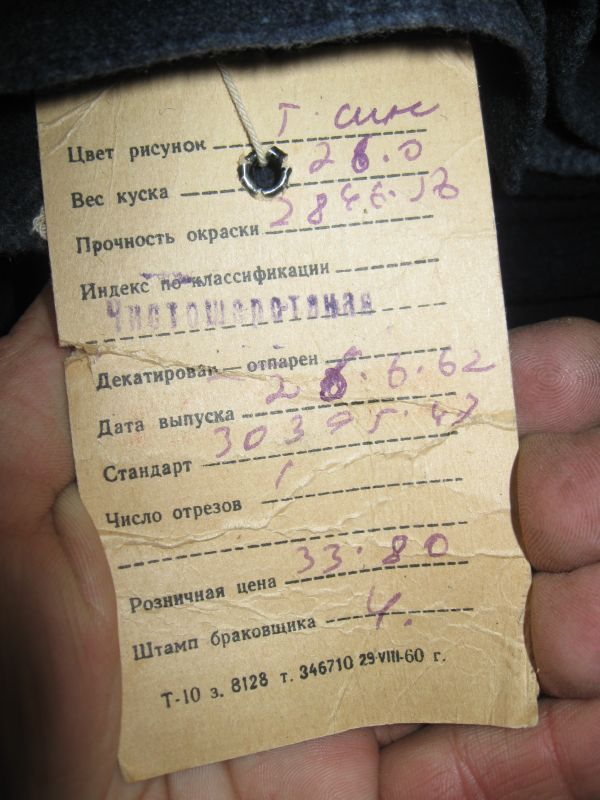 Цвет рисунок Т. синс
Вес куска 26.0
Прочность окраски
Индекс по классификации
Чистошерстяная
Декатирован — отпарен
Дата выпуска 26.6.62
Стандарт
Число отрезов 1
Розничная цена 33.80
Штамп браковщика 4.
Т-10 з. 8128 т. 346710 29-VIII-60 г.